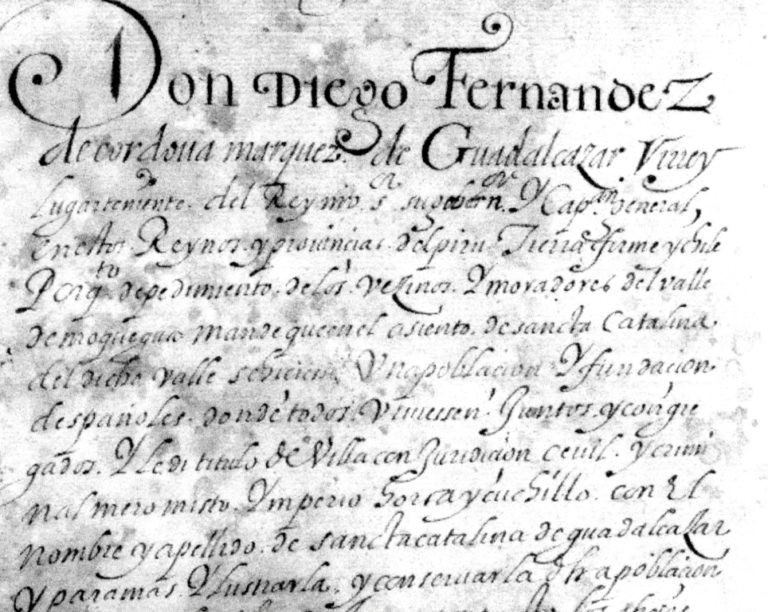 Don Diego Fernandez
de cordova marquez. de Guadalcazar Virrey
lugarteniente. del Rey nro. sr. su gobern.or Y Cap.an General,
en estos Reynos. y provincias. del piru. Tierra firme y chile
Por q.to de pedimiento. de los. vezinos. Y moradores del valle
de moquegua mande que en el asiento. de sancta Catalina
del dicho valle se hiciese. Vna poblacion Y fundacion
de españoles. donde todos. Viuiessen. Juntos. y congre
gados. Y le di titulo de Villa con Juridicion ceuil. y crimi
nal mero misto. Ymperio horca y cuchillo. con El
nombre y apellido. de sancta catalina de guadalcazar
y para mas. Ylustrarla. y conseruar la dha poblacion